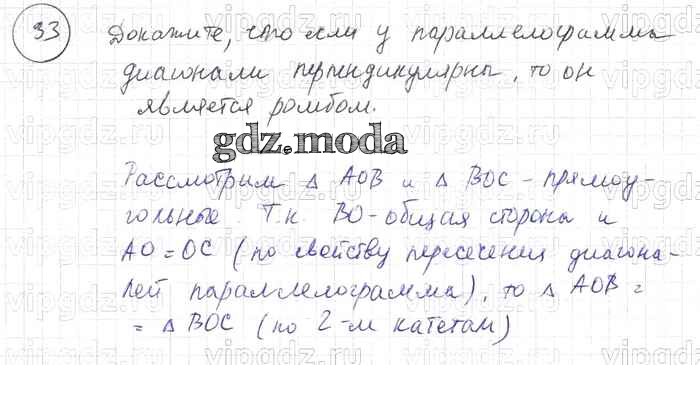 33
Докажите, что если у параллелограмма
диагонали перпендикулярны, то он
является ромбом.
gdz.moda
Рассмотрим Δ AOB и Δ BOC - прямоу-
гольные. Т.к. BO - общая сторона и
AO = OC (по свойству пересечения диагона-
лей параллелограмма), то Δ AOB =
= Δ BOC (по 2-м катетам)